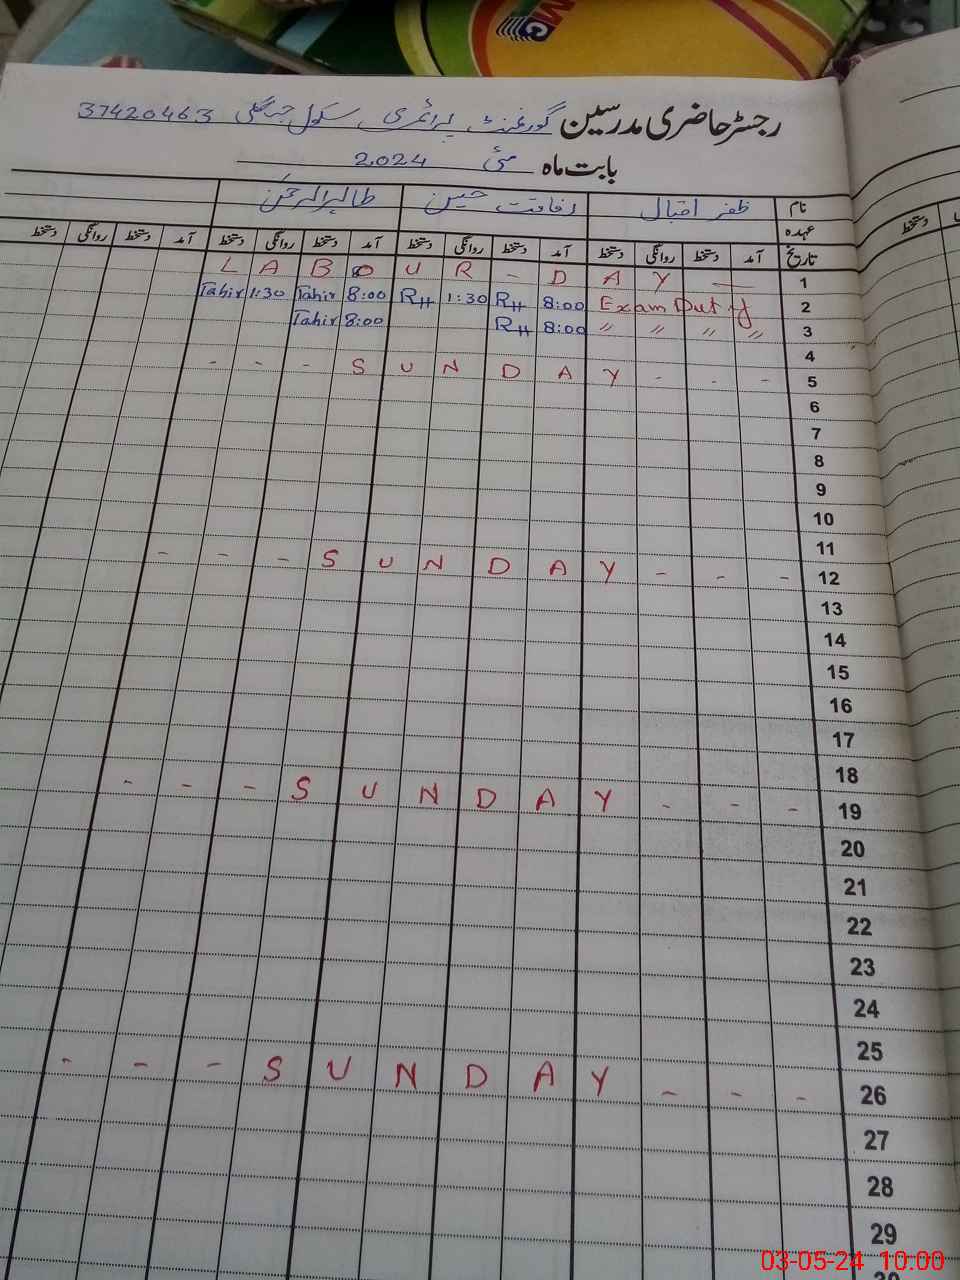 رجسٹر حاضری مدرسین گورنمنٹ پرائمری سکول 37420463
بابت ماہ مئی 2024
نام ظفر اقبال رفاقت حسین طاہر الرحمٰن
عہدہ
تاریخ آمد دستخط روانگی دستخط آمد دستخط روانگی دستخط آمد دستخط روانگی دستخط آمد دستخط روانگی دستخط
L A B O U R - D A Y — 1
Tahir 1:30 Tahir 8:00 RH 1:30 RH 8:00 Exam Duty 2
Tahir 8:00 RH 8:00 〃 〃 〃 〃 3
4
- - - S U N D A Y - - - 5
6
7
8
9
10
11
- - - S U N D A Y - - - 12
13
14
15
16
17
18
- - - S U N D A Y - - - 19
20
21
22
23
24
25
- - - S U N D A Y - - - 26
27
28
29
03-05-24 10.00
دستخط
MG